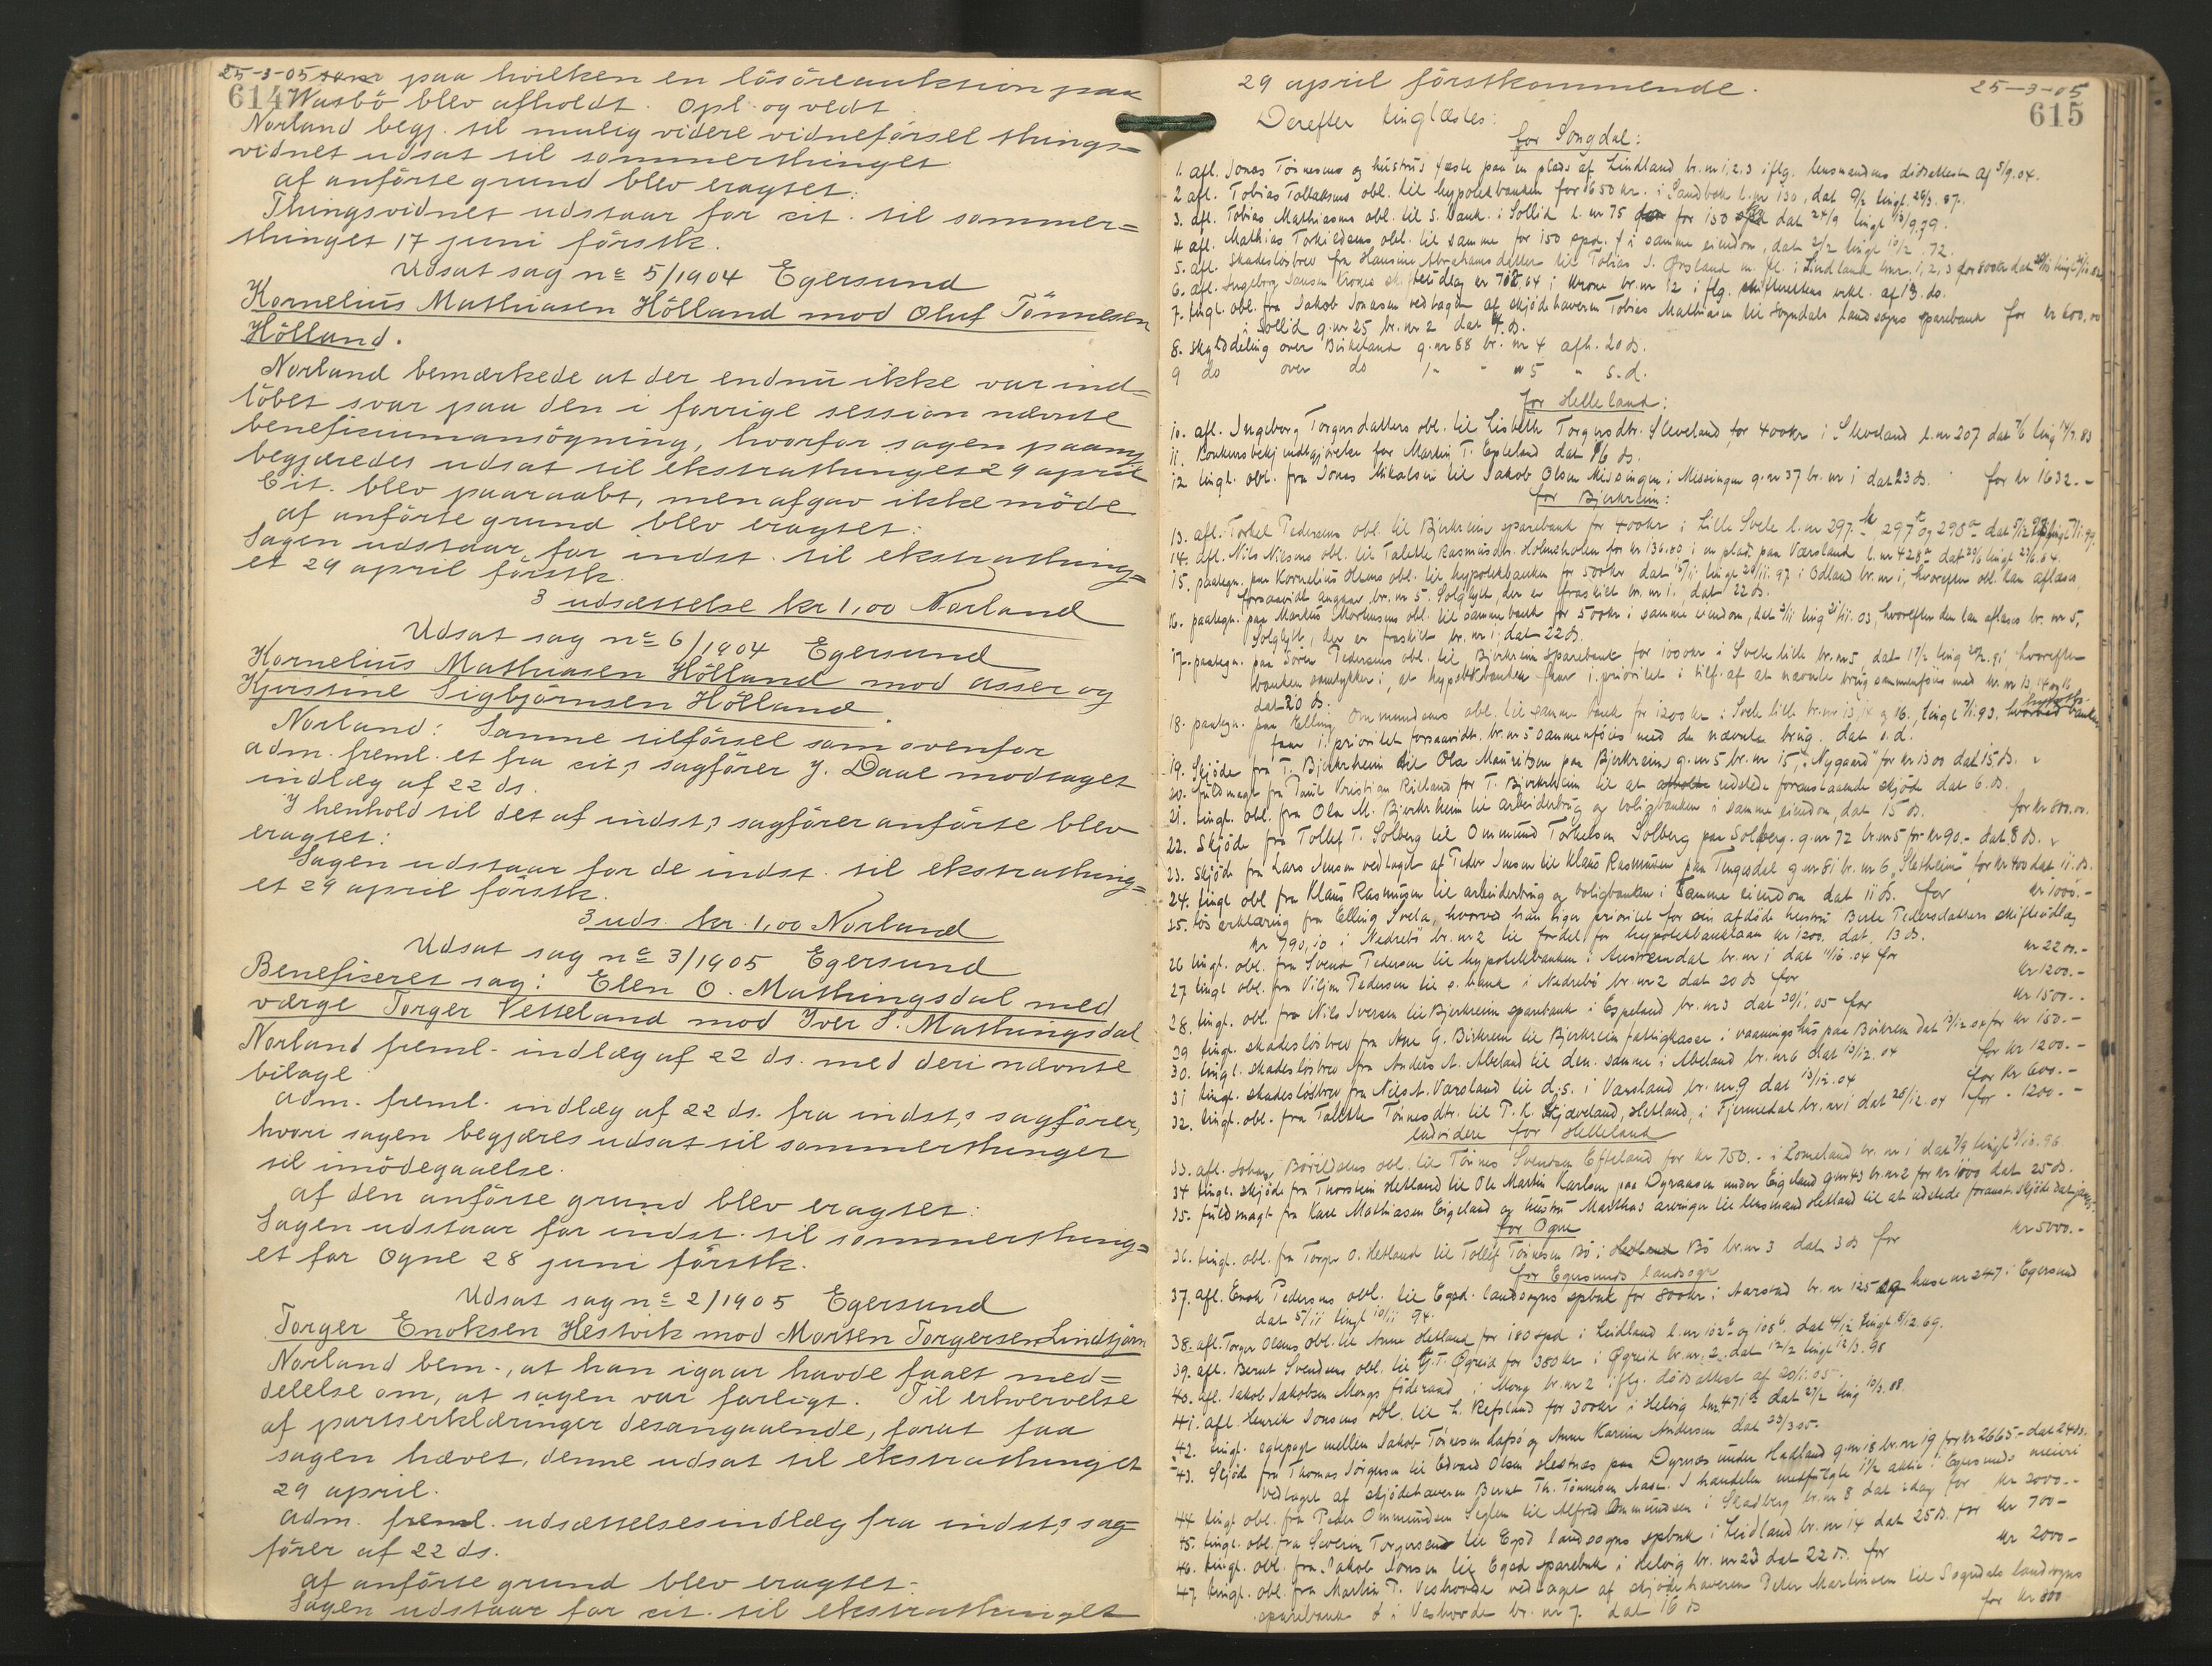 25-3-05 paa hvilken en lösöreauktion paa
614 Wasbö blev afholdt. Opl. og vedt.
Norland begj. til mulig videre vidneförsel things=
vidnet udsat til sommerthinget
af anförte grund blev eragtet:
Thingsvidnet udstaar for cit. til sommer=
thinget 17 juni förstk.
Udsat sag no 5/1904 Egersund
Kornelius Mathiasen Hölland mod Oluf Tönnesen
Hölland.
Norland bemærkede at der endnu ikke var ind=
löbet svar paa den i forrige session nævnte
beneficiumansögning, hvorfor sagen paany
begjæredes udsat til ekstrathinget 29 april
Cit. blev paaraabt, men afgav ikke möde
af anförte grund blev eragtet:
Sagen udstaar for indst. til ekstrathing=
et 29 april förstk.
3 udsættelse kr 1,00 Norland
Udsat sag no 6/1904 Egersund
Kornelius Mathiasen Hölland mod Asser og
Kjerstine Sigbjörnsen Hölland.
Norland: Samme tilförsel som ovenfor
Adm. freml. et fra cit,s sagförer J. Daae modtaget
indlæg af 22 ds.
I henhold til det af indst,s sagförer anförte blev
eragtet:
Sagen udstaar for de indst. til ekstrathing=
et 29 april förstk.
3 uds. kr. 1,00 Norland
Udsat sag no 3/1905 Egersund
Beneficeret sag: Elen O. Mathingsdal med
værge Torger Vetteland mod Iver S. Mathingsdal
Norland freml. indlæg af 22 ds. med deri nævnte
bilage
Adm. freml. indlæg af 22 ds. fra indst,s sagförer,
hvori sagen begjæres udsat til sommerthinget
til imödegaaelse.
af den anförte grund blev eragtet:
Sagen udstaar for indst. til sommerthing=
et for Ogne 28 juni förstk.
Udsat sag no 2/1905 Egersund
Torger Enoksen Hestvik mod Morten Torgersen Lindtjörn
Norland bem., at han igaar havde faaet med=
delelse om, at sagen var forligt. Til erhvervelse
af partserklæringer desangaaende, forat faa
sagen hævet, denne udsat til ekstrathinget
29 april.
Adm. freml. udsættelsesindlæg fra indst,s sag=
förer af 22 ds.
af anförte grund blev eragtet:
Sagen udstaar for cit. til ekstrathinget
29 april förstkommende. 25-3-05
615
Derefter tinglæstes:
for Sogndal:
1. afl. Jonas Tönnesens og hustrus fæste paa en plads af Lindland br.nr 1,2,3 iflg. lensmandens dödsattest af 5/9.04.
2 afl. Tobias Tollaksens obl. til hypotekbanken for 1650 kr. i Sandbæk l.nr 130, dat 9/2 tingl. 26/3. 87.
3. afl. Tobias Mathiasens obl. til S. bank. i Sollid l. nr 75 for 150 spd dat 24/9 tingl
4 afl. Mathias Torkildsens obl. til samme for 150 spd. i samme eiendom, dat 2/2 tingl 10/2. 72.
5. afl. Skadeslösbrev fra Hansine Abrahamsdatter til Tobias J. Örsland m. fl. i Lindland brnr. 1, 2, 3 for 800 kr
6. afl. Ingeborg Jansen Krones skifteudlæg kr 708,64 i Krone br.nr 12 i flg. skifterettens erkl. af 13. ds.
7. tingl. obl. fra Jakob Jonasen vedtaget af skjödehaveren Tobias Mathiasen til Sogndals landsogns sparebank for kr 600,00
i Sollid g.nr 25 br.nr 2 dat 4. ds.
8. skylddeling over Birkeland g.nr 88 br. nr 4 afh. 20 ds.
9 do over do " " 5 " s.d.
for Helleland:
10. afl. Ingeborg Torgersdatters obl. til Lisbeth Torgersdtr. Sleveland for 400 kr i Sleveland l.nr 207 dat
11. Konkursbekjendtgjörelse for Martin T. Egeland dat 16 ds.
12 tingl. obl. fra Jonas Mikalsen til Jakob Olsen Missingen i Missingen g.nr 37 br.nr 1 dat 23 ds. for kr 1632.-
for Bjerkreim:
13. afl. Torkel Pedersens obl. til Bjerkreim sparebank for 400 kr i Lille Svele l.nr 297
14. afl. Nils Nilsens obl. til Talette Rasmusdtr. Holmskolen for kr 136.80 i en plads paa Versland l. nr 428
15. paategn. paa Kornelius Olsens obl. til hypotekbanken for 500 kr dat 15/11 tingl 20/11. 97 i Odland br.nr 1, hvorefter obl. kan aflæses
forsaavidt angaar br.nr 5. Solglytt, der er fraskilt br.nr 1. dat 22 ds.
16. paategn. paa Markus Mortensens obl. til samme bank for 500 kr i samme eiendom, dat 2/11 tingl 21/11. 03, hvorefter den kan aflæses br. nr 5,
Solglytt, der er fraskilt br.nr 1. dat 22 ds.
17. paategn. paa Sören Pedersens obl. til Bjerkreim sparebank for 1000 kr i Svele lille br.nr 5, dat 17/2 tingl hvorefter
banken samtykker i, at hypotekbanken faar 1. prioritet i tilf. af at nævnte brug sammenföies med br. nr 13, 14 og 16
dat 20 ds.
18. paategn. paa Elling Ommundsens obl. til samme bank for 1200 kr i Svele lille br.nr 13, 14 og 16., tingl 7/1.93, hvorved banken
faar 1. prioritet forsaavidt br.nr 5 sammenföies med de nævnte brug. dat s.d.
19. Skjöde fra T. Bjerkrheim til Ola Mauritzen paa Bjerkreim g.nr 5 br.nr 15, "Nygaard" for kr 1300 dat 15 ds.
20. fuldmagt fra Paul Kristian Reiland for T. Bjerkrheim til at udstede foranstaaende skjöde dat 6. ds.
21. tingl. obl. fra Ola M. Bjerkrheim til arbeiderbrug og boligbanken i samme eiendom, dat 15 ds. for kr 800.00.
22. Skjöde fra Tollef T. Solberg til Ommund Torkelsen Solberg paa Solberg. g.nr 72 br.nr 5 for kr 90.- dat 8 ds.
23. Skjöde fra Lars Jensen vedtaget af Peder Jensen til Klaus Rasmussen paa Tengesdal g.nr 81 br.nr 6 "Sletheim" for kr 400 dat 11. ds.
24. tingl obl fra Klaus Rasmussen til arbeiderbrug og boligbanken i samme eiendom dat 11 ds. for kr 1000.-
25. löserklæring fra Elling Svela, hvorved han viger prioritet for sin afdöde hustru Berte Pedersdatters skifteudlæg
kr 790,10 i Nedrebö br.nr 2 til fordel for hypotekbanklaan kr 1200. dat. 13 ds.
26 tingl. obl. fra Svend Pedersen til hypotekbanken i Austrumdal br.nr 1 dat 11/10.04 for kr 2200.-
27 tingl obl. fra Viljem Pedersen til s. bank i Nedrebö br.nr 2 dat 20 ds for kr 1200.-
28. tingl. obl. fra Nils Iversen til Bjerkreim sparebank i Espeland br.nr 3 dat 20/1. 05 for kr 1500.-
29 tingl. skadeslösbrev fra Arne G. Birkrem til Bjerkreim fattigkasse i vaaningshus paa Birkrem dat 13/12 04 for kr 150.-
30. tingl. skadeslösbrev fra Anders A. Abeland til den. samme i Abeland br.nr 6 dat 13/12.04 for kr 1200.-
31 tingl. skadeslösbrev fra Nils A. Varsland til d.s. i Varsland br. nr. 9 dat 13/12.04 for kr 600.-
32. tingl. obl. fra Talette Tönnesdtr. til P. K. Skjæveland, Hetland, i Fjermedal br.nr 1 dat 28/12.04 for - 1200.-
endvidere for Helleland
33. afl. Johan Börildsens obl. til Tönnes Svendsen Efteland for kr 750.- i Lomeland br. nr 1
34 tingl. skjöde fra Thorstein Hetland til Ole Martin Karlsen paa Dyraasen under Eigeland g.nr 43 br.nr 2 for kr 1000 dat 25 ds.
35. fuldmagt fra Kare Mathiasen Eigeland og hustru Marthas arvinger til lensmand Hetland til at udstede foranst. skjöde
for Ogne
36. tingl. obl. fra Torger O. Hetland til Tollef Tönnesen Bö i Bö br.nr 3 dat 3 ds for kr 5000.-
for Egersunds landsogn
37. afl. Enok Pedersens obl. til Egsd. landsogns spbnk for 800 kr i Aarstad br. nr 125 og hus nr 247 i Egersund
dat 5/11 tingl 10/11 94.
38. afl. Torger Olsens obl. til Anne Hetland for 180 spd i Leidland l.nr 102 og 108, dat 4/12 tingl 8/12 69.
39. afl. Bernt Svendsens obl. til G.T. Øgreid for 380 kr i Øgreid br.nr. 2. dat 12/2 tingl 12/3. 98
40. afl. Jakob Jakobsen Mongs föderaad i Mong br.nr 2 iflg. dödsattest af 20/1.05.
41. afl. Henrik Jonsens obl. til L. Refsland for 300 kr i Helvig
42. tingl. egtepagt mellem Jakob Tönnesen Hafsö og Anne Karine Andersen dat 23/3 05.
43. Skjöde fra Thomas Jörgensen til Edvard Olsen Hestnes paa Dyrnes under Hadland g.nr 18 br.nr 19 for kr 2665.- dat 24 ds.
vedtaget af skjödehaveren Bernt Th. Tönnesen Aase. I handelen medfölgte 1 1/2 aktie i Egersunds meieri
44 tingl obl. fra Peder Ommundsen Seglem til Alfred Ommundsen i Skadberg br.nr 8 dat idag for kr 2000.-
45. tingl. obl. fra Severin Torgersen til Egsd landsogns spbnk i Leidland br. nr 14 dat 25 ds. for kr 700-
46. tingl. obl. fra Jakob Jonsen til Egsd sparebnk i Helvig br. nr 23 dat 22 ds. for kr 2000-
47. tingl. obl. fra Martin P. Veshovde vedtaget af skjödehaveren Peter Martinsen til Sogndals landsogns
sparebank i Veshovde br. nr 7. dat 16 ds for kr 800